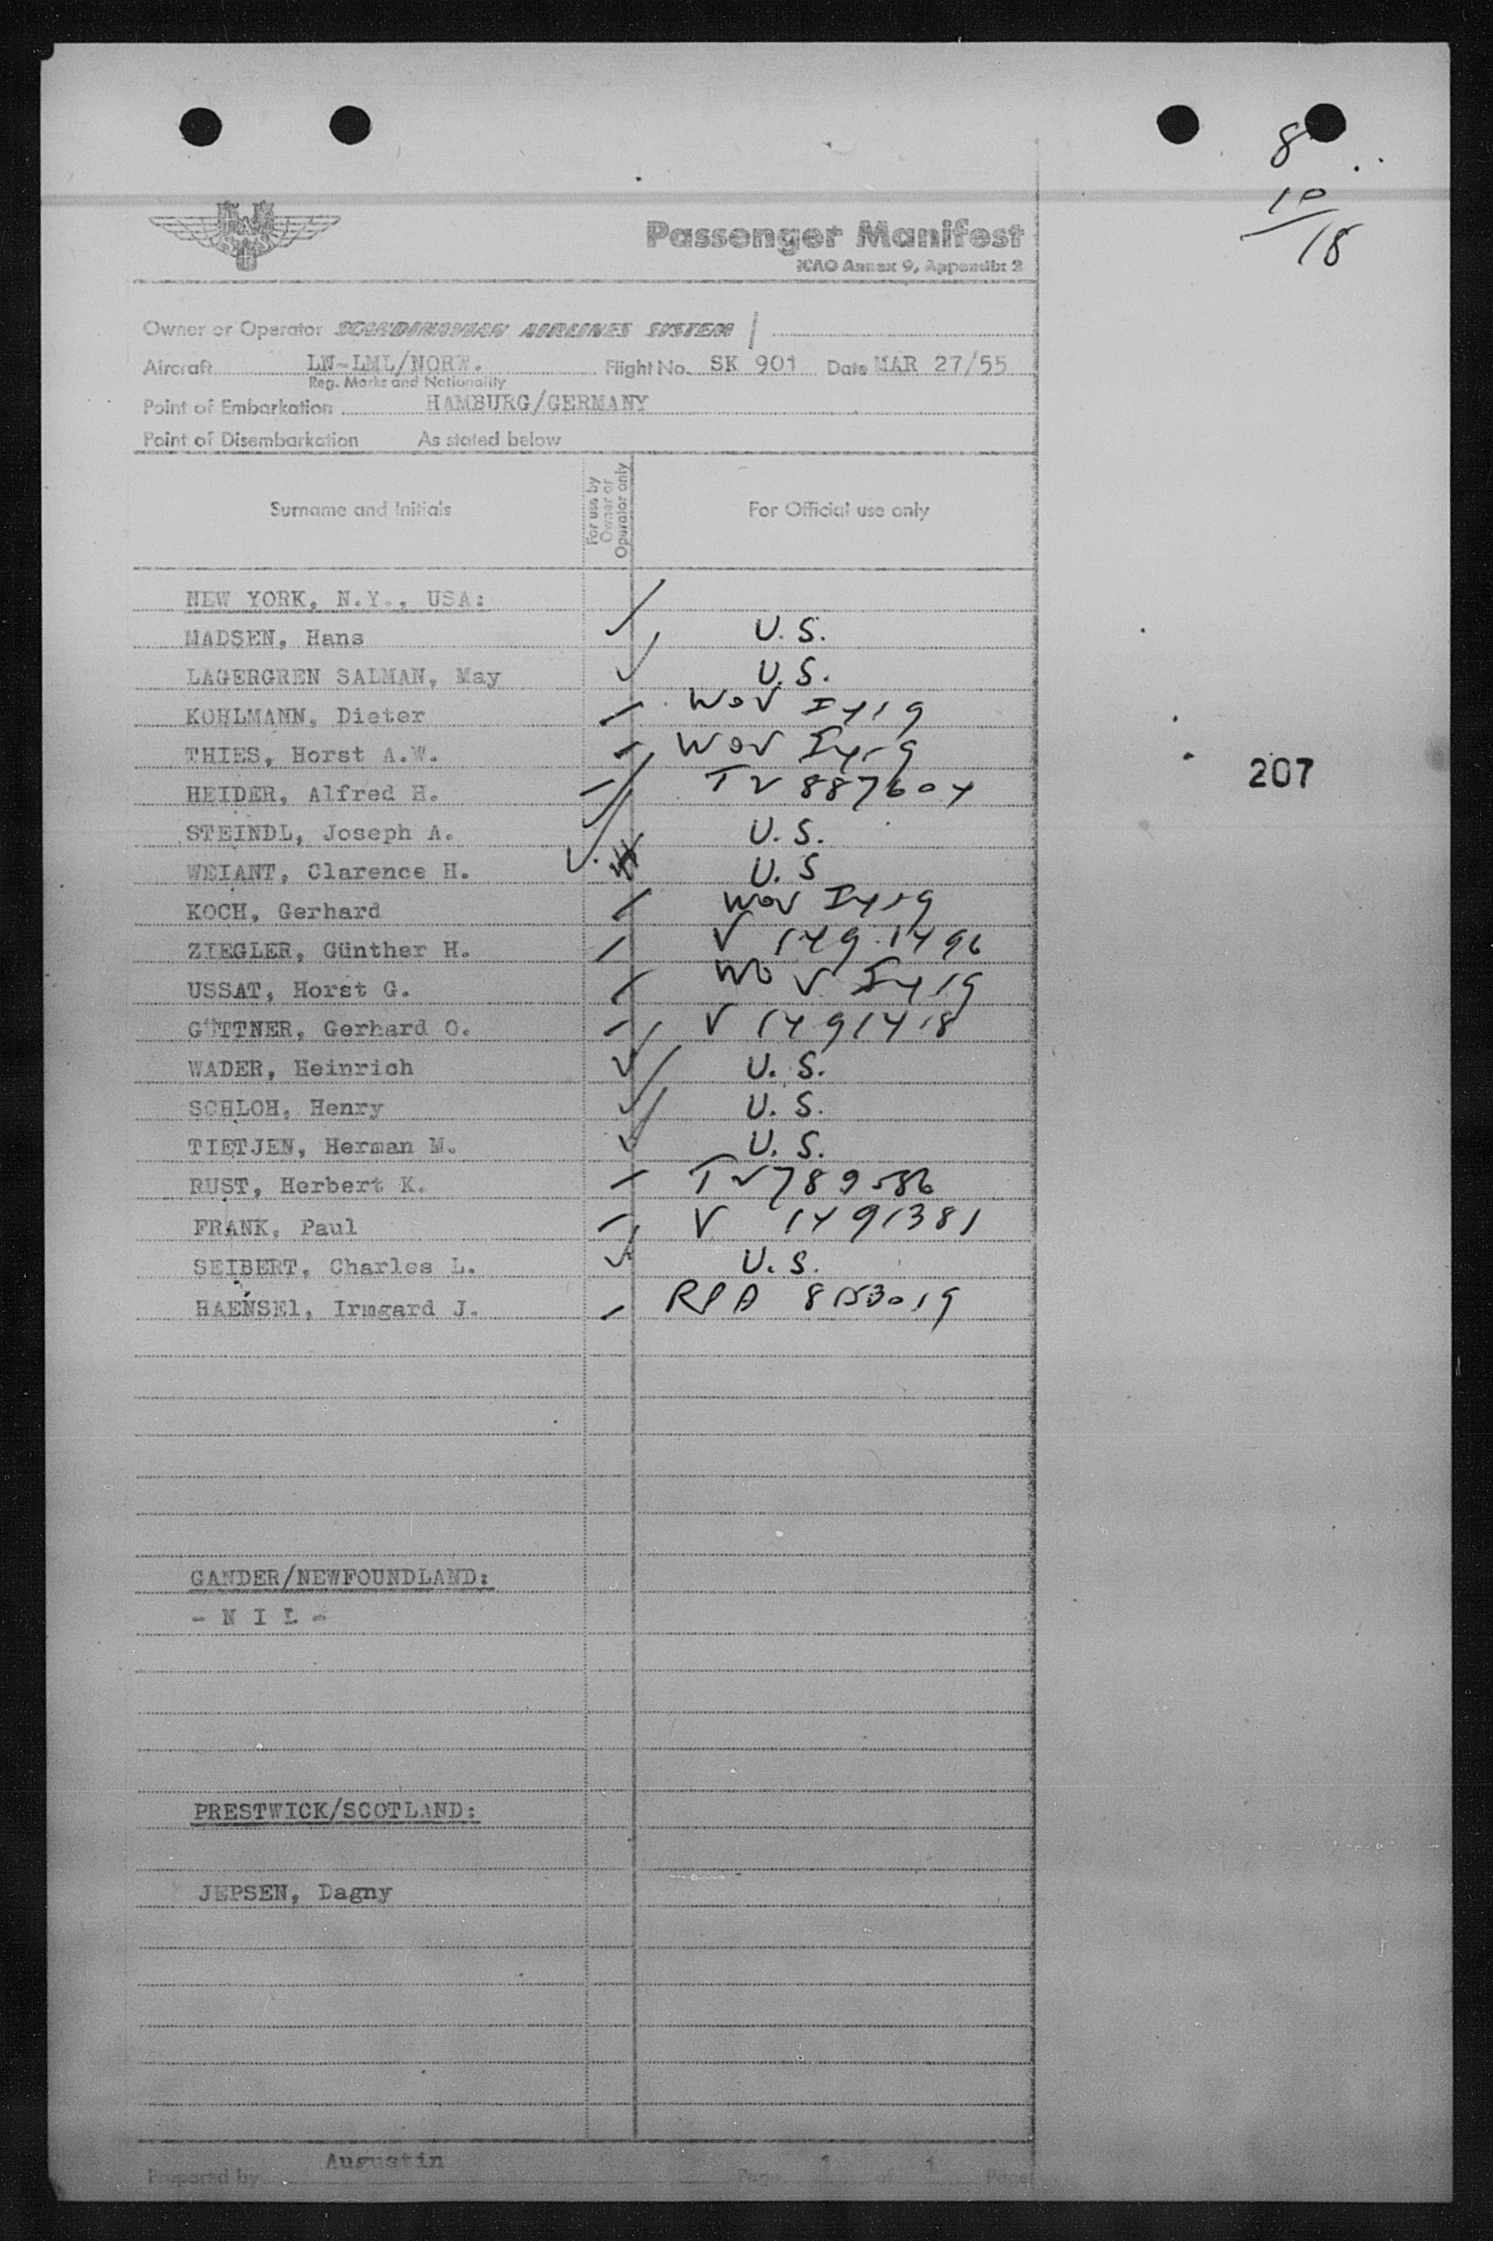 8
10
18
Passenger Manifest
ICAO Annex 9, Appendix 2
Owner or Operator SCANDINAVIAN AIRLINES SYSTEM
Aircraft LN-LML/NORW. Flight No. SK 901 Date MAR 27/55
Reg. Marks and Nationality
Point of Embarkation HAMBURG/GERMANY
Point of Disembarkation As stated below
Surname and Initials For use by Owner or Operator only For Official use only
NEW YORK, N.Y., USA:
MADSEN, Hans U.S.
LAGERGREN SALMAN, May U.S.
KOHLMANN, Dieter WOV
THIES, Horst A.W. WOV
HEIDER, Alfred H. TV 887604
STEINDL, Joseph A. U.S.
WEIANT, Clarence H. U.S
KOCH, Gerhard WOV
ZIEGLER, Günther H. V 1491496
USSAT, Horst G. WOV
GÜTTNER, Gerhard O. V 1491418
WADER, Heinrich U.S.
SCHLOH, Henry U.S.
TIETJEN, Herman M. U.S.
RUST, Herbert K. TV 789586
FRANK, Paul V 1491381
SEIBERT, Charles L. U.S.
HAENSEl, Irmgard J. RPA
207
GANDER/NEWFOUNDLAND:
- N I L -
PRESTWICK/SCOTLAND:
JEPSEN, Dagny
Prepared by Augustin Page 1 of 1 Pages